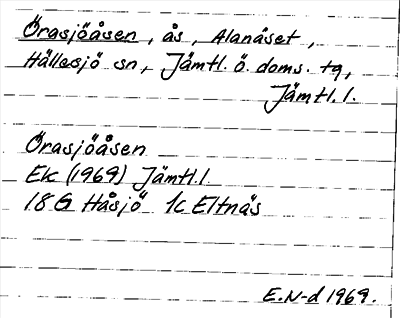 Örasjöåsen, ås, Alanäset,
Hällesjö sn, Jämtl. ö. doms. tg,
Jämtl. l.
Örasjöåsen
Ek (1969) Jämtl. l
18 G Håsjö 1c Eltnäs
E.N-d 1969.